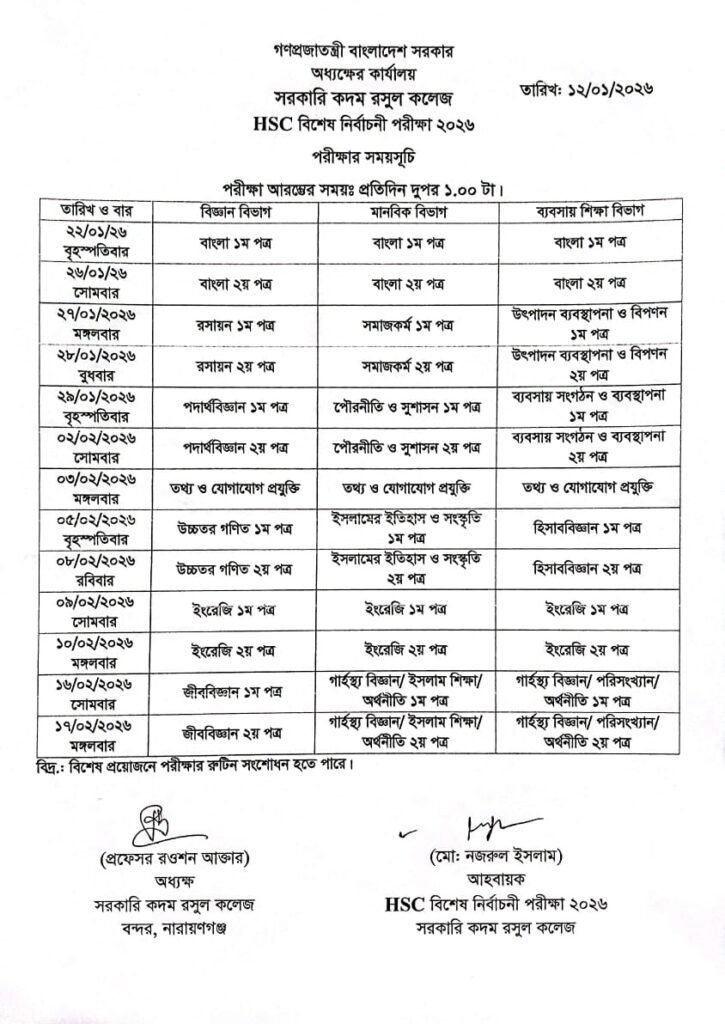 গণপ্রজাতন্ত্রী বাংলাদেশ সরকার
অধ্যক্ষের কার্যালয়
সরকারি কদম রসুল কলেজ
তারিখ: ১২/০১/২০২৬
HSC বিশেষ নির্বাচনী পরীক্ষা ২০২৬
পরীক্ষার সময়সূচি
পরীক্ষা আরম্ভের সময়ঃ প্রতিদিন দুপর ১.০০ টা।
তারিখ ও বার বিজ্ঞান বিভাগ মানবিক বিভাগ ব্যবসায় শিক্ষা বিভাগ
২২/০১/২৬
বৃহস্পতিবার বাংলা ১ম পত্র বাংলা ১ম পত্র বাংলা ১ম পত্র
২৬/০১/২৬
সোমবার বাংলা ২য় পত্র বাংলা ২য় পত্র বাংলা ২য় পত্র
২৭/০১/২০২৬
মঙ্গলবার রসায়ন ১ম পত্র সমাজকর্ম ১ম পত্র উৎপাদন ব্যবস্থাপনা ও বিপণন
১ম পত্র
২৮/০১/২০২৬
বুধবার রসায়ন ২য় পত্র সমাজকর্ম ২য় পত্র উৎপাদন ব্যবস্থাপনা ও বিপণন
২য় পত্র
২৯/০১/২০২৬
বৃহস্পতিবার পদার্থবিজ্ঞান ১ম পত্র পৌরনীতি ও সুশাসন ১ম পত্র ব্যবসায় সংগঠন ও ব্যবস্থাপনা
১ম পত্র
০২/০২/২০২৬
সোমবার পদার্থবিজ্ঞান ২য় পত্র পৌরনীতি ও সুশাসন ২য় পত্র ব্যবসায় সংগঠন ও ব্যবস্থাপনা
২য় পত্র
০৩/০২/২০২৬
মঙ্গলবার তথ্য ও যোগাযোগ প্রযুক্তি তথ্য ও যোগাযোগ প্রযুক্তি তথ্য ও যোগাযোগ প্রযুক্তি
০৫/০২/২০২৬
বৃহস্পতিবার উচ্চতর গণিত ১ম পত্র ইসলামের ইতিহাস ও সংস্কৃতি
১ম পত্র হিসাববিজ্ঞান ১ম পত্র
০৮/০২/২০২৬
রবিবার উচ্চতর গণিত ২য় পত্র ইসলামের ইতিহাস ও সংস্কৃতি
২য় পত্র হিসাববিজ্ঞান ২য় পত্র
০৯/০২/২০২৬
সোমবার ইংরেজি ১ম পত্র ইংরেজি ১ম পত্র ইংরেজি ১ম পত্র
১০/০২/২০২৬
মঙ্গলবার ইংরেজি ২য় পত্র ইংরেজি ২য় পত্র ইংরেজি ২য় পত্র
১৬/০২/২০২৬
সোমবার জীববিজ্ঞান ১ম পত্র গার্হস্থ্য বিজ্ঞান/ ইসলাম শিক্ষা/
অর্থনীতি ১ম পত্র গার্হস্থ্য বিজ্ঞান/ পরিসংখ্যান/
অর্থনীতি ১ম পত্র
১৭/০২/২০২৬
মঙ্গলবার জীববিজ্ঞান ২য় পত্র গার্হস্থ্য বিজ্ঞান/ ইসলাম শিক্ষা/
অর্থনীতি ২য় পত্র গার্হস্থ্য বিজ্ঞান/ পরিসংখ্যান/
অর্থনীতি ২য় পত্র
বিদ্র.: বিশেষ প্রয়োজনে পরীক্ষার রুটিন সংশোধন হতে পারে।
(প্রফেসর রওশন আক্তার)
অধ্যক্ষ
সরকারি কদম রসুল কলেজ
বন্দর, নারায়ণগঞ্জ
(মো: নজরুল ইসলাম)
আহবায়ক
HSC বিশেষ নির্বাচনী পরীক্ষা ২০২৬
সরকারি কদম রসুল কলেজ